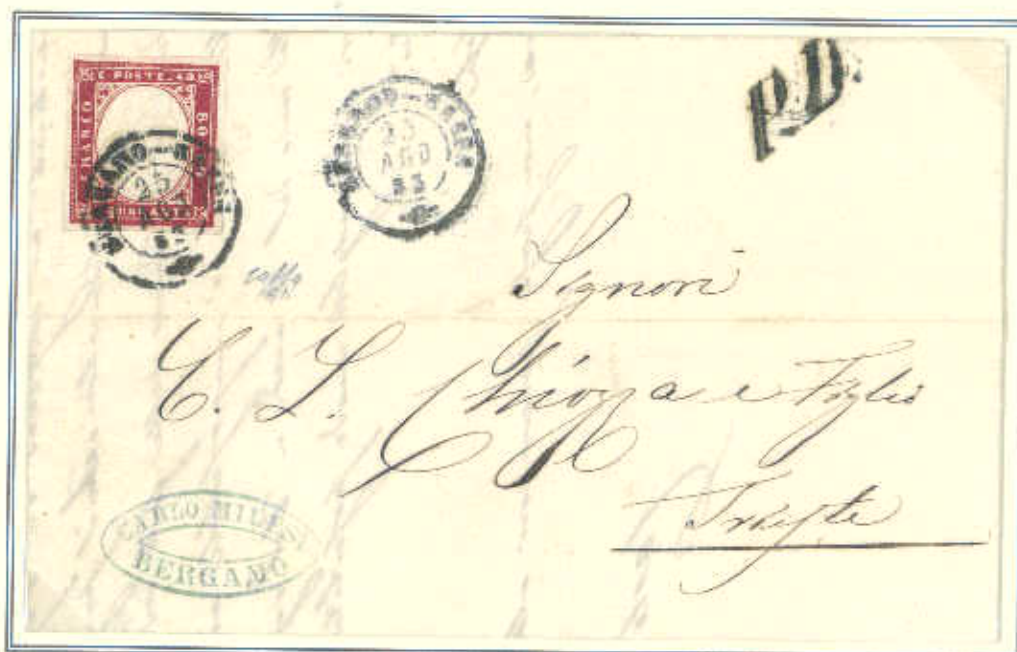 C. POSTE. 40
FRANCO
BOLLO
BERGAMO
25
AGO
63
25
AGO
63
P.D.
Signori
C. L. Chiozza e Figlio
Trieste
CARLO MILESI
BERGAMO